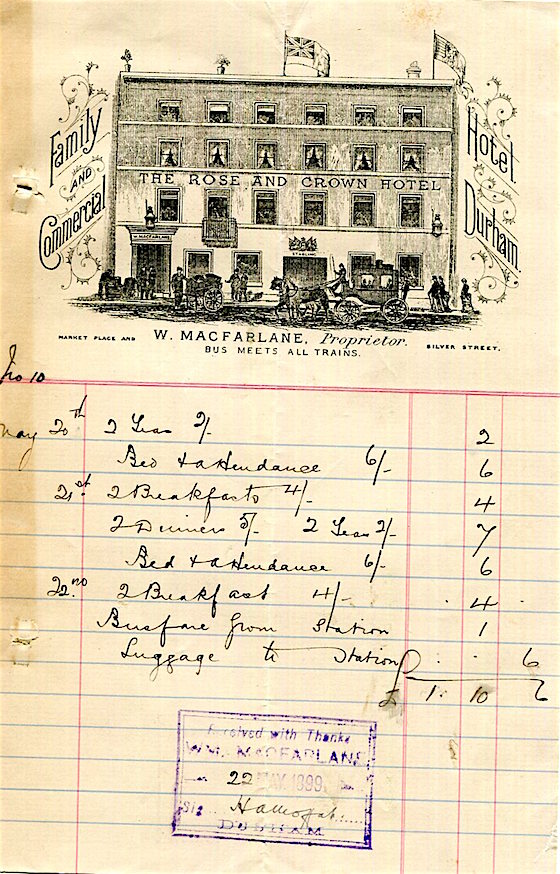 Family
AND
Commercial
Hotel
Durham.
THE ROSE AND CROWN HOTEL
W. MACFARLANE
STABLING
MARKET PLACE AND W. MACFARLANE, Proprietor. SILVER STREET.
BUS MEETS ALL TRAINS.
No 10
May 20th 2 Teas 2/- 2
Bed & attendance 6/- 6
21st 2 Breakfasts 4/- 4
2 Dinners 5/- 2 Teas 2/- 7
Bed & attendance 6/- 6
22nd 2 Breakfast 4/- 4
Busfare from Station 1
Luggage to Station 6
£ 1 10 6
Received with Thanks
WM. MACFARLANE
22 MAY 1899
DURHAM